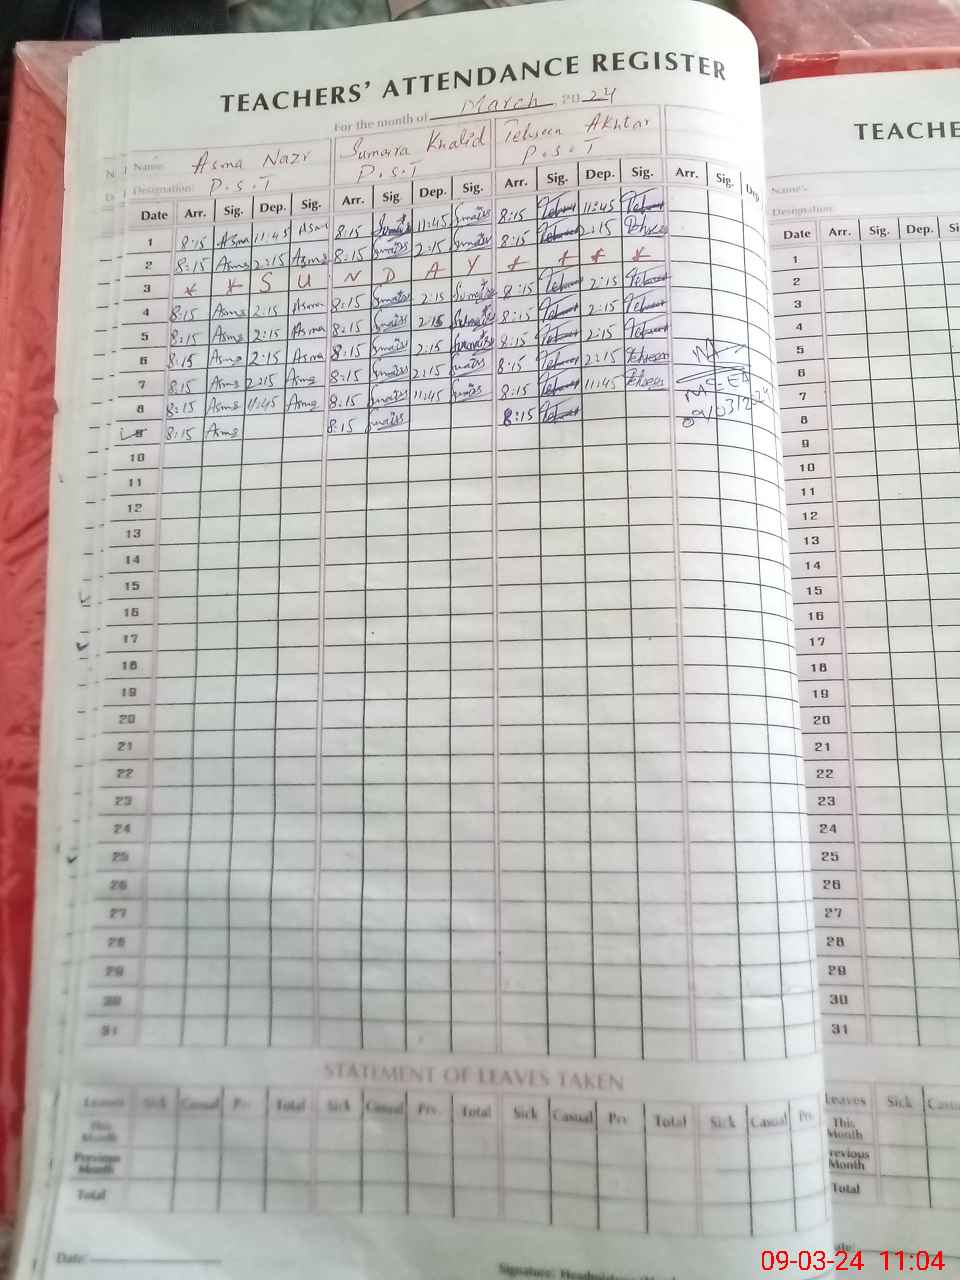 TEACHERS' ATTENDANCE REGISTER
For the month of March, 2024
Name: Asma Nazr Sumaira Khalid Tehseen Akhtar
Designation: P.S.T P.S.T P.S.T
Date Arr. Sig. Dep. Sig. Arr. Sig. Dep. Sig. Arr. Sig. Dep. Sig. Arr. Sig. Dep
1 8:15 Asma 11:45 Asma 8:15 11:45 8:15 11:45
2 8:15 Asma 2:15 Asma 8:15 2:15 8:15 2:15
3 * * S U N D A Y * * * *
4 8:15 Asma 2:15 Asma 8:15 2:15 8:15 2:15
5 8:15 Asma 2:15 Asma 8:15 2:15 8:15 2:15
6 8:15 Asma 2:15 Asma 8:15 2:15 8:15 2:15
7 8:15 Asma 2:15 Asma 8:15 2:15 8:15 2:15
8 8:15 Asma 11:45 Asma 8:15 11:45 8:15 11:45
9 8:15 Asma 8:15 8:15
09/03/2024
10
11
12
13
14
15
16
17
18
19
20
21
22
23
24
25
26
27
28
29
30
31
STATEMENT OF LEAVES TAKEN
Leaves Sick Casual Prv Total Sick Casual Prv. Total Sick Casual Prv Total Sick Casual Prv
This Month
Previous Month
Total
Date:
Signature:
TEACHE
Name:
Designation:
Date Arr. Sig. Dep. Si
1
2
3
4
5
6
7
8
9
10
11
12
13
14
15
16
17
18
19
20
21
22
23
24
25
26
27
28
29
30
31
Leaves Sick Casu
This Month
revious Month
Total
09-03-24 11:04